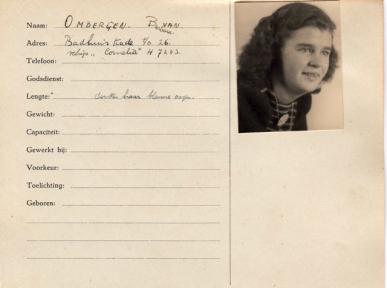 Naam: OMBERGEN. VAN.
Adres: Badhuiskade t/o 26.
schip „Cornelia" H 7243
Telefoon:
Godsdienst:
Lengte: donker haar blauwe ogen.
Gewicht:
Capaciteit:
Gewerkt bij:
Voorkeur:
Toelichting:
Geboren: